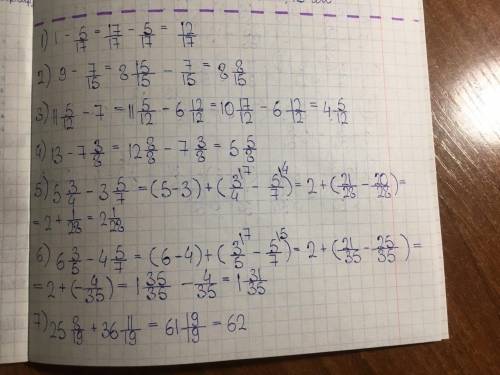 1) 1 - 5/17 = 17/17 - 5/17 = 12/17
2) 9 - 7/15 = 8 15/15 - 7/15 = 8 8/15
3) 11 5/12 - 7 = 11 5/12 - 6 12/12 = 10 17/12 - 6 12/12 = 4 5/12
4) 13 - 7 3/8 = 12 8/8 - 7 3/8 = 5 5/8
5) 5 3/4 - 3 5/7 = (5-3) + (3/4 \7 - 5/7 \4) = 2 + (21/28 - 20/28) =
= 2 + 1/28 = 2 1/28
6) 6 3/5 - 4 5/7 = (6-4) + (3/5 \7 - 5/7 \5) = 2 + (21/35 - 25/35) =
= 2 + (-4/35) = 1 35/35 - 4/35 = 1 31/35
7) 25 8/19 + 36 11/19 = 61 19/19 = 62